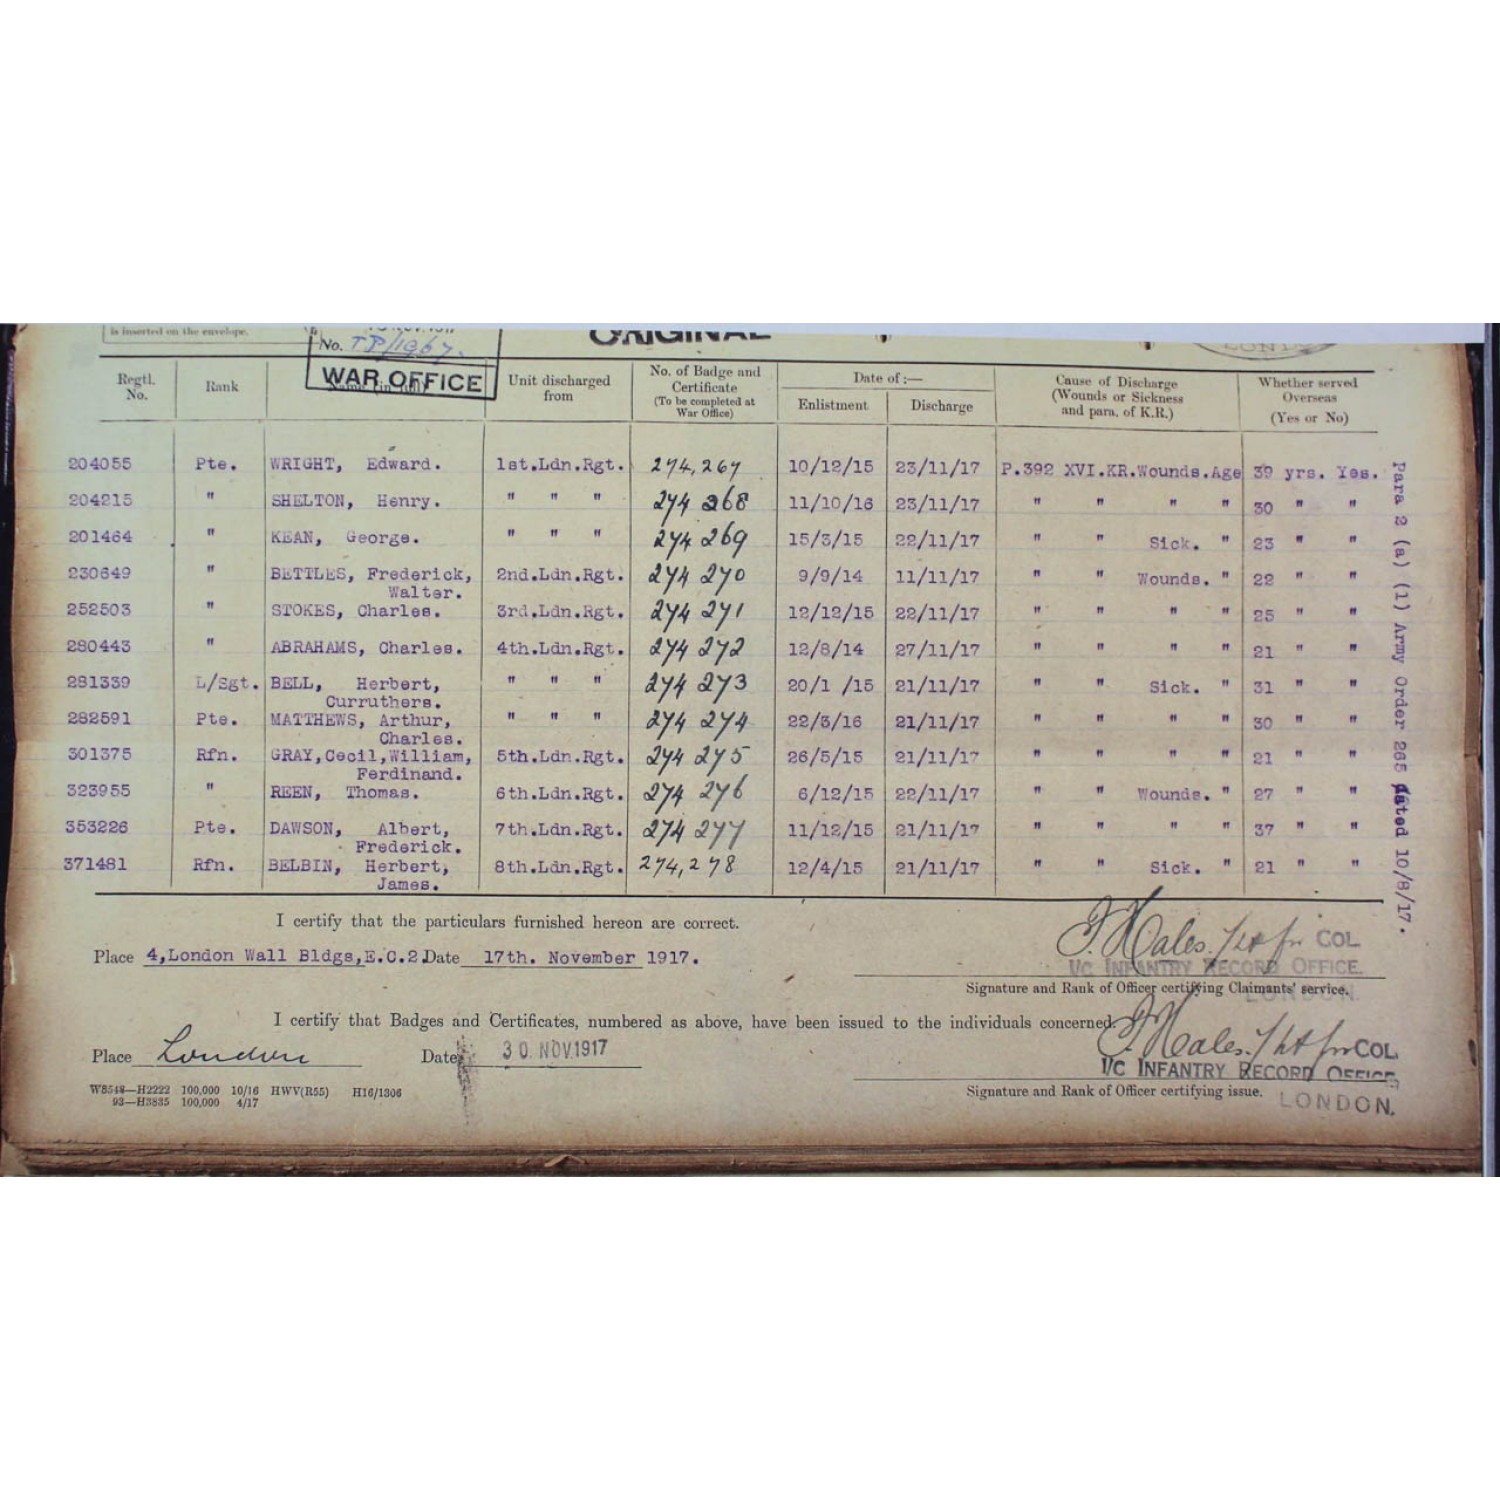 is inserted on the envelope.
No. TP/1967.
ORIGINAL
WAR OFFICE
Regtl. No. Rank Unit discharged from No. of Badge and Certificate (To be completed at War Office) Date of :— Enlistment Discharge Cause of Discharge (Wounds or Sickness and para. of K.R.) Whether served Overseas (Yes or No)
204055 Pte. WRIGHT, Edward. 1st.Ldn.Rgt. 274,267 10/12/15 23/11/17 P.392 XVI.KR.Wounds.Age 39 yrs. Yes.
204215 " SHELTON, Henry. " " " 274 268 11/10/16 23/11/17 " " " " 30 " "
201464 " KEAN, George. " " " 274 269 15/3/15 22/11/17 " " Sick. " 23 " "
230649 " BETTLES, Frederick, 2nd.Ldn.Rgt. 274 270 9/9/14 11/11/17 " " Wounds. " 22 " "
Walter.
252503 " STOKES, Charles. 3rd.Ldn.Rgt. 274 271 12/12/15 22/11/17 " " " " 25 " "
280443 " ABRAHAMS, Charles. 4th.Ldn.Rgt. 274 272 12/8/14 27/11/17 " " " " 21 " "
281339 L/Sgt. BELL, Herbert, " " " 274 273 20/1 /15 21/11/17 " " Sick. " 31 " "
Curruthers.
282591 Pte. MATTHEWS, Arthur, " " " 274 274 22/3/16 21/11/17 " " " " 30 " "
Charles.
301375 Rfn. GRAY,Cecil,William, 5th.Ldn.Rgt. 274 275 26/5/15 21/11/17 " " " " 21 " "
Ferdinand.
323955 " REEN, Thomas. 6th.Ldn.Rgt. 274 276 6/12/15 22/11/17 " " Wounds. " 27 " "
353226 Pte. DAWSON, Albert, 7th.Ldn.Rgt. 274 277 11/12/15 21/11/17 " " " " 37 " "
Frederick.
371481 Rfn. BELBIN, Herbert, 8th.Ldn.Rgt. 274,278 12/4/15 21/11/17 " " Sick. " 21 " "
James.
Para 2 (a) (1) Army Order 265 dated 10/8/17.
I certify that the particulars furnished hereon are correct.
Place 4,London Wall Bldgs,E.C.2 Date 17th. November 1917.
F. Hales. /Lt for COL
I/C INFANTRY RECORD OFFICE.
Signature and Rank of Officer certifying Claimants' service.
LONDON.
I certify that Badges and Certificates, numbered as above, have been issued to the individuals concerned.
F. Hales. /Lt for COL.
Place London Date 30. NOV.1917
I/C INFANTRY RECORD OFFICE,
Signature and Rank of Officer certifying issue.
LONDON.
W8548—H2222 100,000 10/16 HWV(R55) H16/1306
93—H3835 100,000 4/17